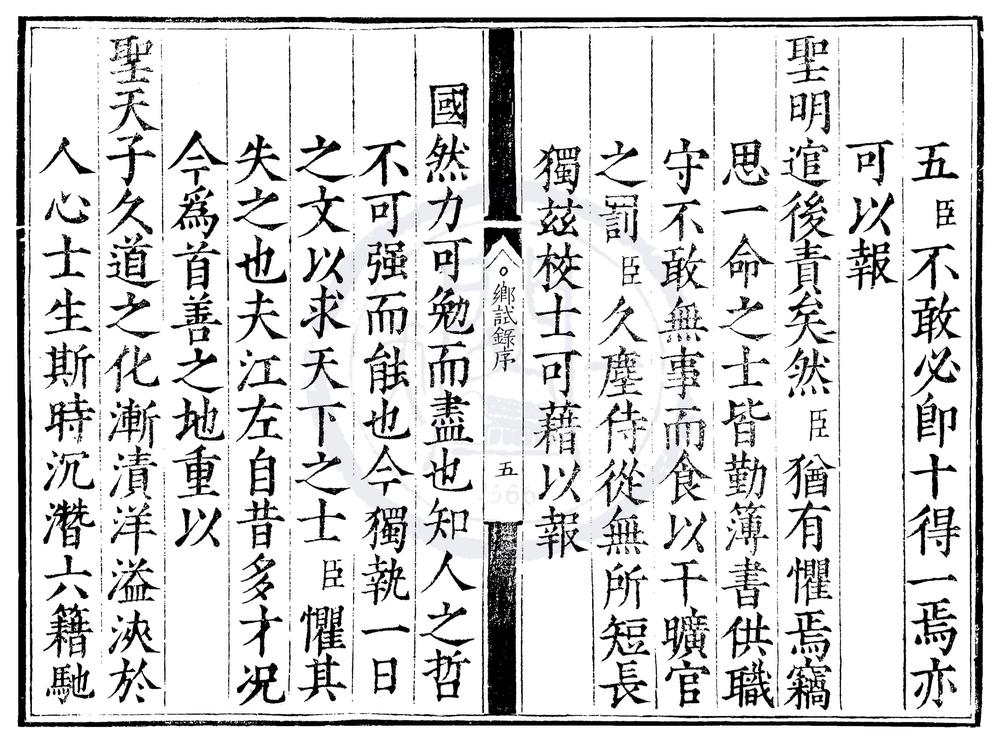 五臣不敢必卽十得一焉亦
可以報
聖明逭後責矣然臣猶有懼焉竊
思一命之士皆勤簿書供職
守不敢無事而食以干曠官
之罰臣久塵侍從無所短長
獨茲校士可藉以報
鄉試錄序 五
國然力可勉而盡也知人之哲
不可强而能也今獨執一日
之文以求天下之士臣懼其
失之也夫江左自昔多才况
今爲首善之地重以
聖天子久道之化漸漬洋溢浹於
人心士生斯時沉潛六籍馳